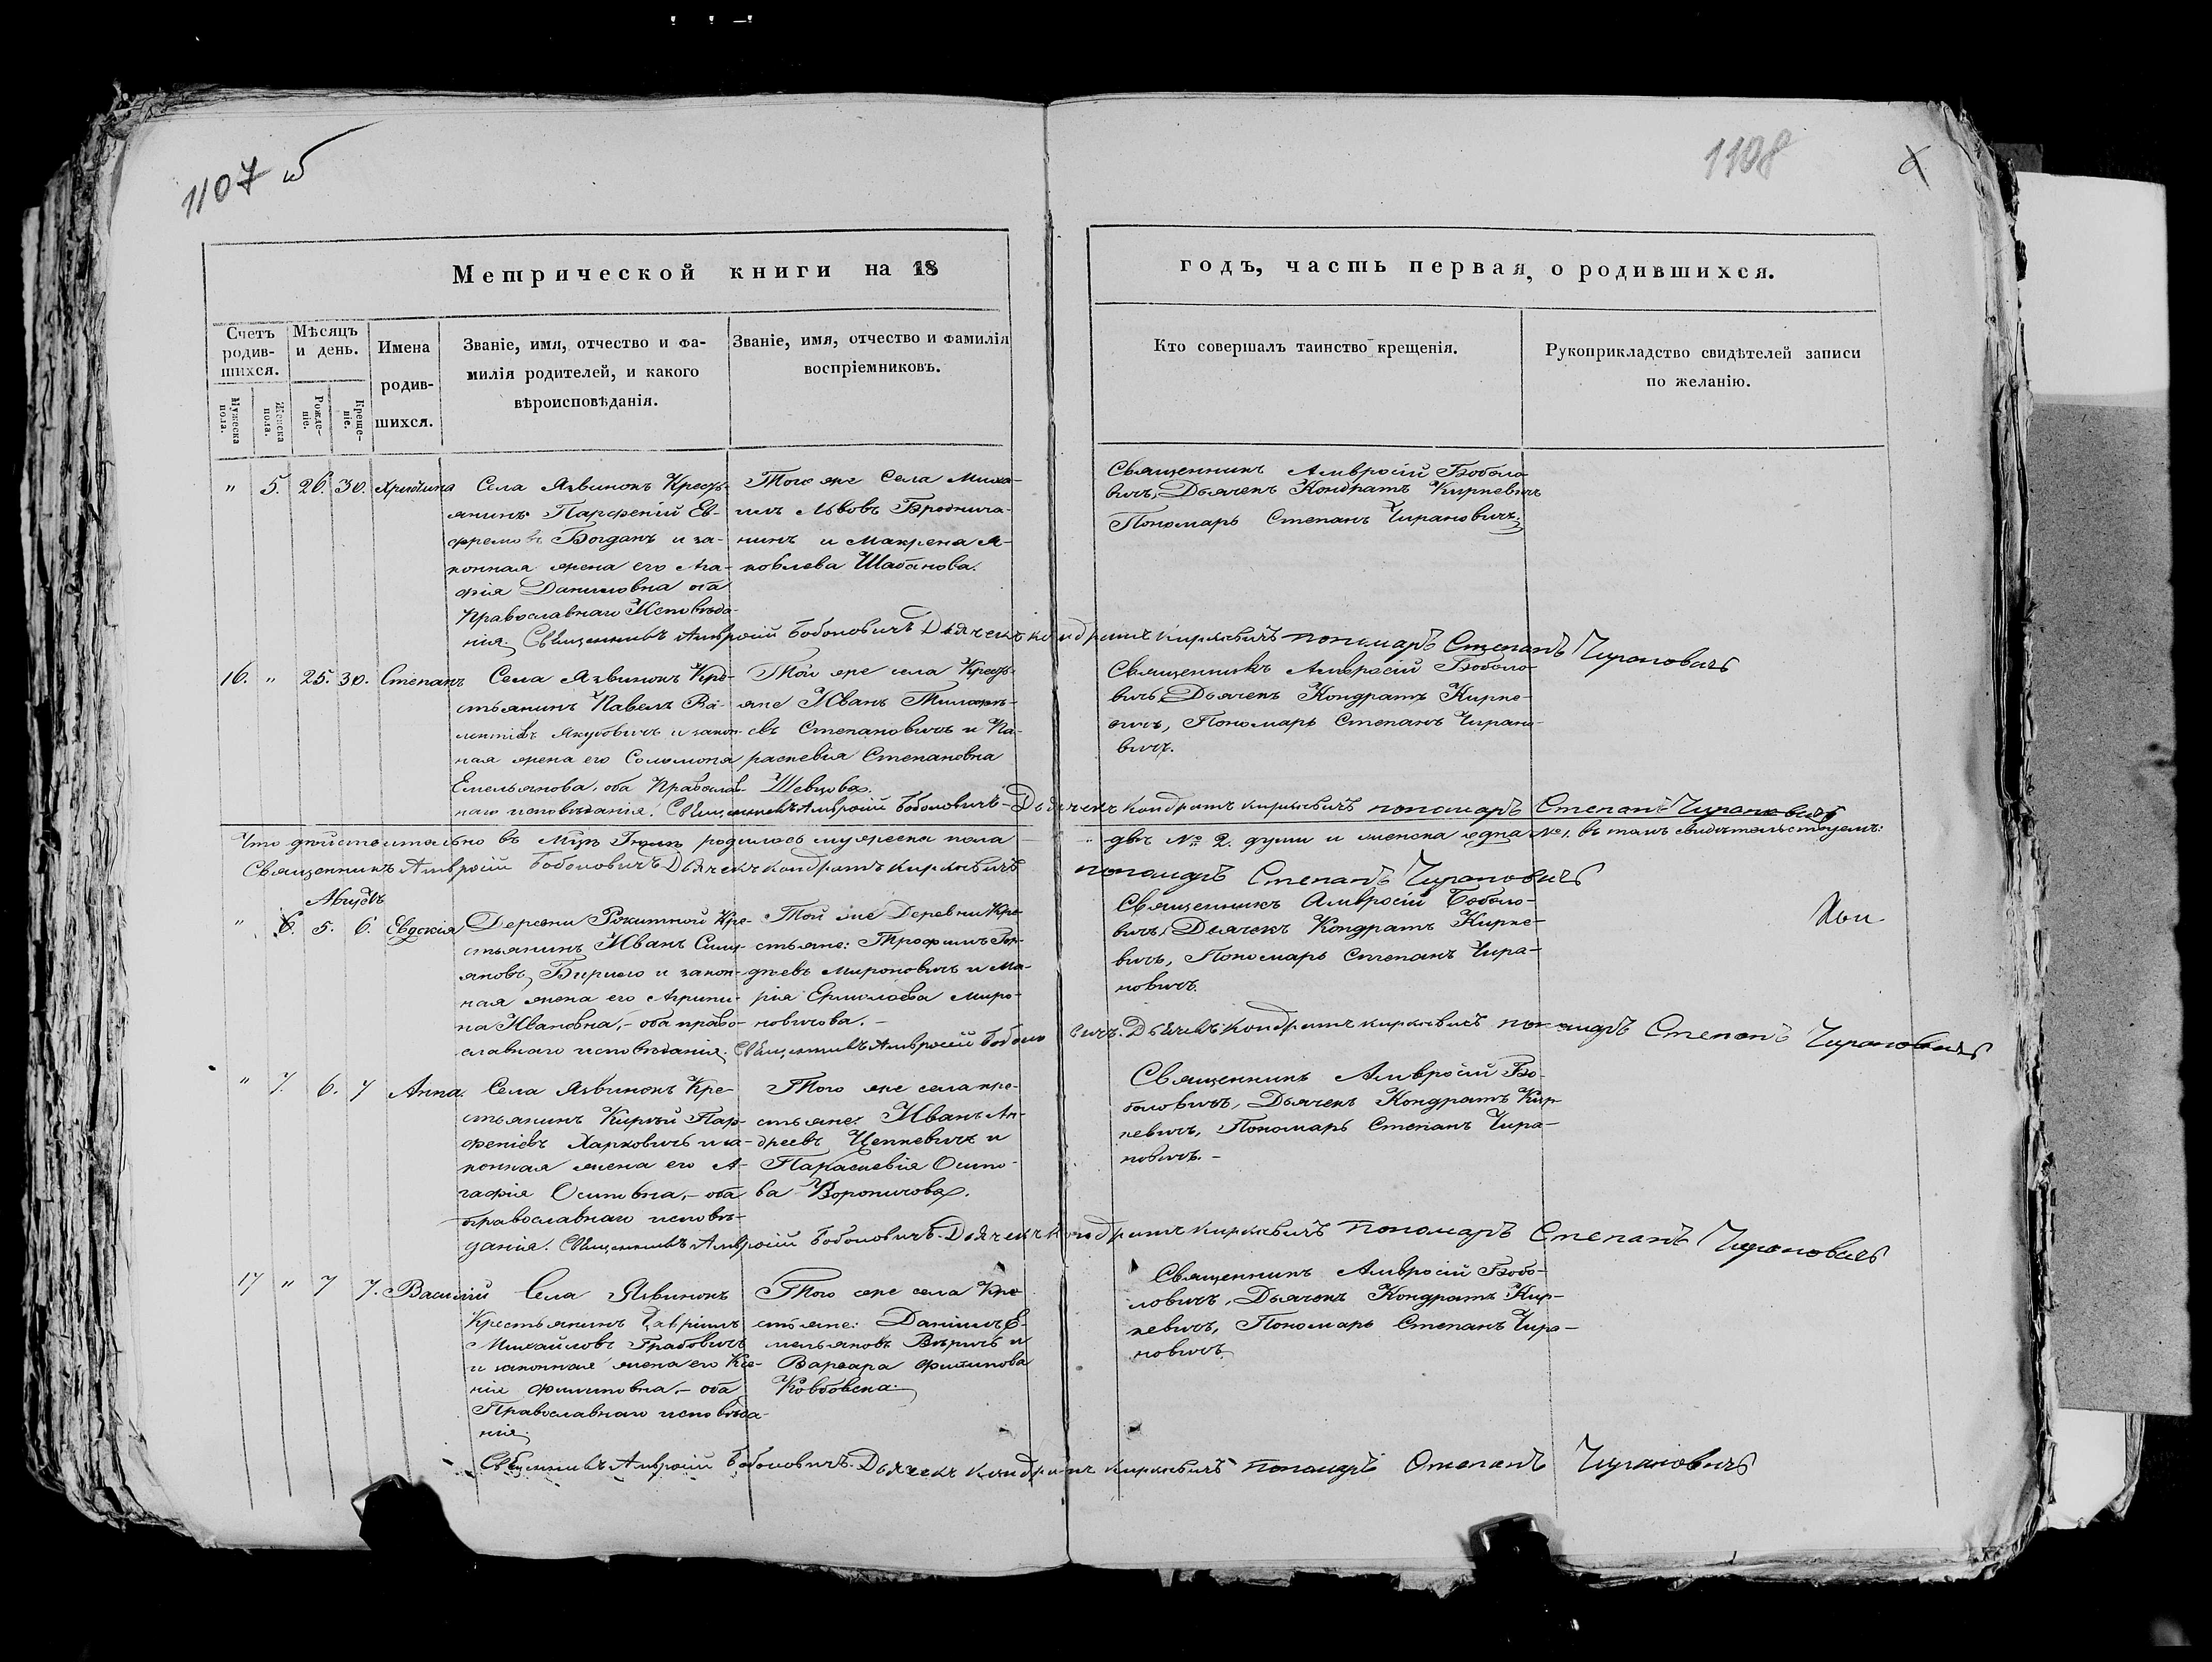 1107
1108
Метрической книги на 18
годъ, часть первая, о родившихся.
Счетъ родив-шихся.
Мѣсяцъ и день.
Имена родив-шихся.
Званіе, имя, отчество и фа-
милія родителей, и какого
вѣроисповѣданія.
Званіе, имя, отчество и фамилія
воспріемниковъ.
Кто совершалъ таинство крещенія.
Рукоприкладство свидѣтелей записи
по желанію.
Мужеска пола.
Женска пола.
Рожде-ніе.
Креще-ніе.
" 5. 26. 30. Христина
Села Язвинокъ Кресть-
янинъ Парфеній Ев-
фремовъ Богданъ и за-
конная жена его Ага-
фія Даниловна оба
Православнаго Исповѣда-
нія.
Того же Села Миха-
илъ Львовъ Броднича-
нинъ и Макрена Я-
ковлева Шабанова.
Священникъ Амвросій Боболо-
вичъ, Дьячекъ Кондратъ Киркевичъ
Пономарь Степанъ Чирановичъ.
Священникъ Амвросій Боболовичъ Дьячекъ Кондратъ Киркевичъ пономаръ Степанъ Чирановичъ
16. " 25. 30. Степанъ
Села Язвинокъ Кре-
стьянинъ Павелъ Ва-
лентіевъ Якубовичъ и закон-
ная жена его Соломонія
Емельянова, оба Православ-
наго исповѣданія.
Той же села Кресть-
яне Иванъ Тимофѣ-
евъ Степановичъ и Па-
раскевія Степановна
Шевцова.
Священникъ Амвросій Боболо-
вичъ, Дьячекъ Кондратъ Кирке-
вичъ, Пономарь Степанъ Чирано-
вичъ.
Священникъ Амвросій Боболовичъ Дьячекъ Кондратъ Киркевичъ пономаръ Степанъ Чирановичъ
Что дѣйствительно въ Мцѣ Іюлѣ родилось мужеска пола двѣ № 2. души и женска една № 1, въ томъ свидѣтельствуемъ:
Священникъ Амвросій Боболовичъ Дьячекъ Кондратъ Киркевичъ пономаръ Степанъ Чирановичъ
Августъ
" 6. 5. 6. Евдокия
Деревни Рокитной Кре-
стьянинъ Иванъ Симу-
яновъ Бирило и закон-
ная жена его Агрипи-
на Ивановна, - оба право-
славнаго исповѣданія.
Той же Деревни Кре-
стьяне: Трофимъ Гор-
дѣевъ Мироновичъ и Ма-
рія Ермолаева Миро-
новичова. -
Священникъ Амвросій Боболо-
вичъ, Дьячекъ Кондратъ Кирке-
вичъ, Пономарь Степанъ Чира-
новичъ.
Священникъ Амвросій Боболовичъ. Дьячекъ Кондратъ Киркевичъ пономаръ Степанъ Чирановичъ
" 7. 6. 7 Анна.
Села Язвинокъ Кре-
стьянинъ Кирчій Пар-
феніевъ Харковичъ и за-
конная жена его А-
гафія Осиповна, - оба
православнаго исповѣ-
данія.
Того же села кре-
стьяне: Иванъ Ан-
дреевъ Цепкевичъ и
Параскевія Осипо-
ва Вороничова.
Священникъ Амвросій Бо-
боловичъ, Дьячекъ Кондратъ Кир-
кевичъ, Пономарь Степанъ Чира-
новичъ. -
Священникъ Амвросій Боболовичъ. Дьячекъ Кондратъ Киркевичъ пономаръ Степанъ Чирановичъ
17 " 7 7. Василій
Села Язвинокъ
Крестьянинъ Гавріилъ
Михайловъ Грабовичъ
и законная жена его Ксе-
нія Филиповна, - оба
Православнаго исповѣда-
нія.
Того же села Кре-
стьяне: Даніилъ Е-
мельяновъ Вѣричъ и
Варвара Филипова
Ковбовска.
Священникъ Амвросій Бобо-
ловичъ, Дьячекъ Кондратъ Кир-
кевичъ, Пономарь Степанъ Чира-
новичъ
Священникъ Амвросій Боболовичъ. Дьячекъ Кондратъ Киркевичъ пономаръ Степанъ Чирановичъ